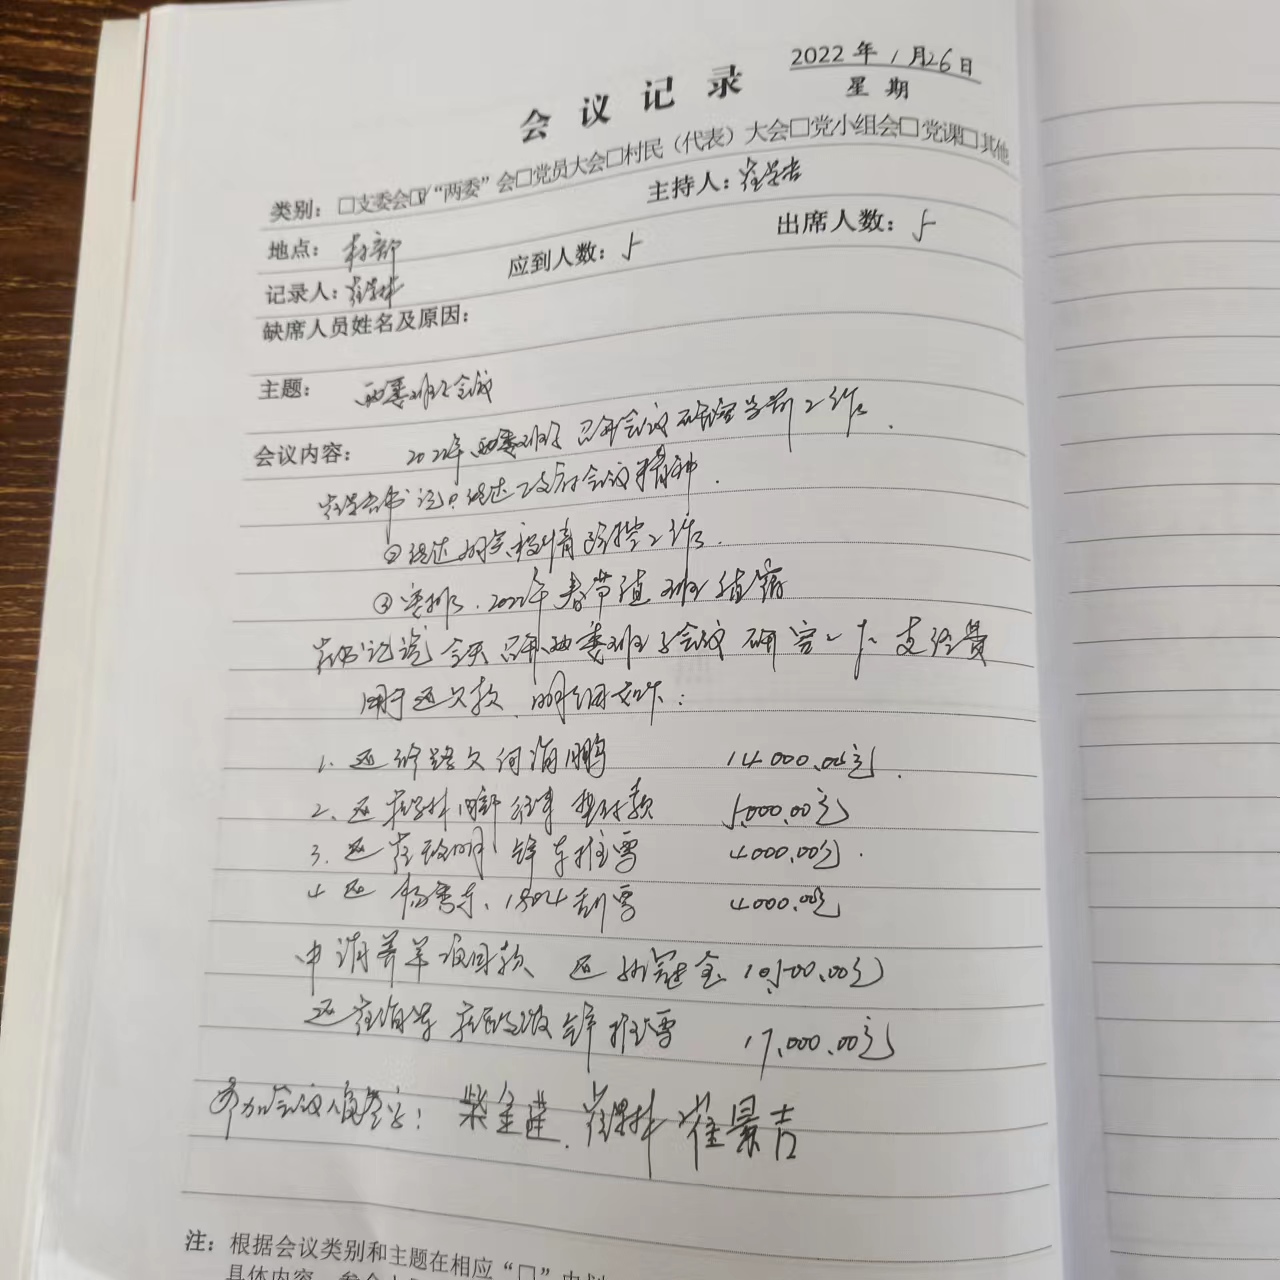 2022 年 1 月 26 日
会 议 记 录
星 期
类别：□支委会☑“两委”会□党员大会□村民（代表）大会□党小组会□党课□其他
地点：村部 主持人：崔景吉
记录人： 应到人数：5 出席人数：5
缺席人员姓名及原因：
主题：两委班子会议
会议内容：2022年两委班子召开会议研究当前工作.
崔景吉书记①传达 政府会议精神.
②传达 疫情防控工作.
③安排、2022年春节值班
崔书记说 今天召开两委班子会议 研究 支经费
用于还欠款. 明细如下：
1、还修路欠何海鹏 14000.00元.
2、还 垫付款 5,000.00元
3. 还 铲车推雪 4000.00元.
4 还 刮雪 4000.00元
申请养羊项目款 还 10,500.00元
还 铲推雪 17,000.00元
参加会议人员签字：柴金莲、 崔景吉
注：根据会议类别和主题在相应“□”中划
具体内容、参会